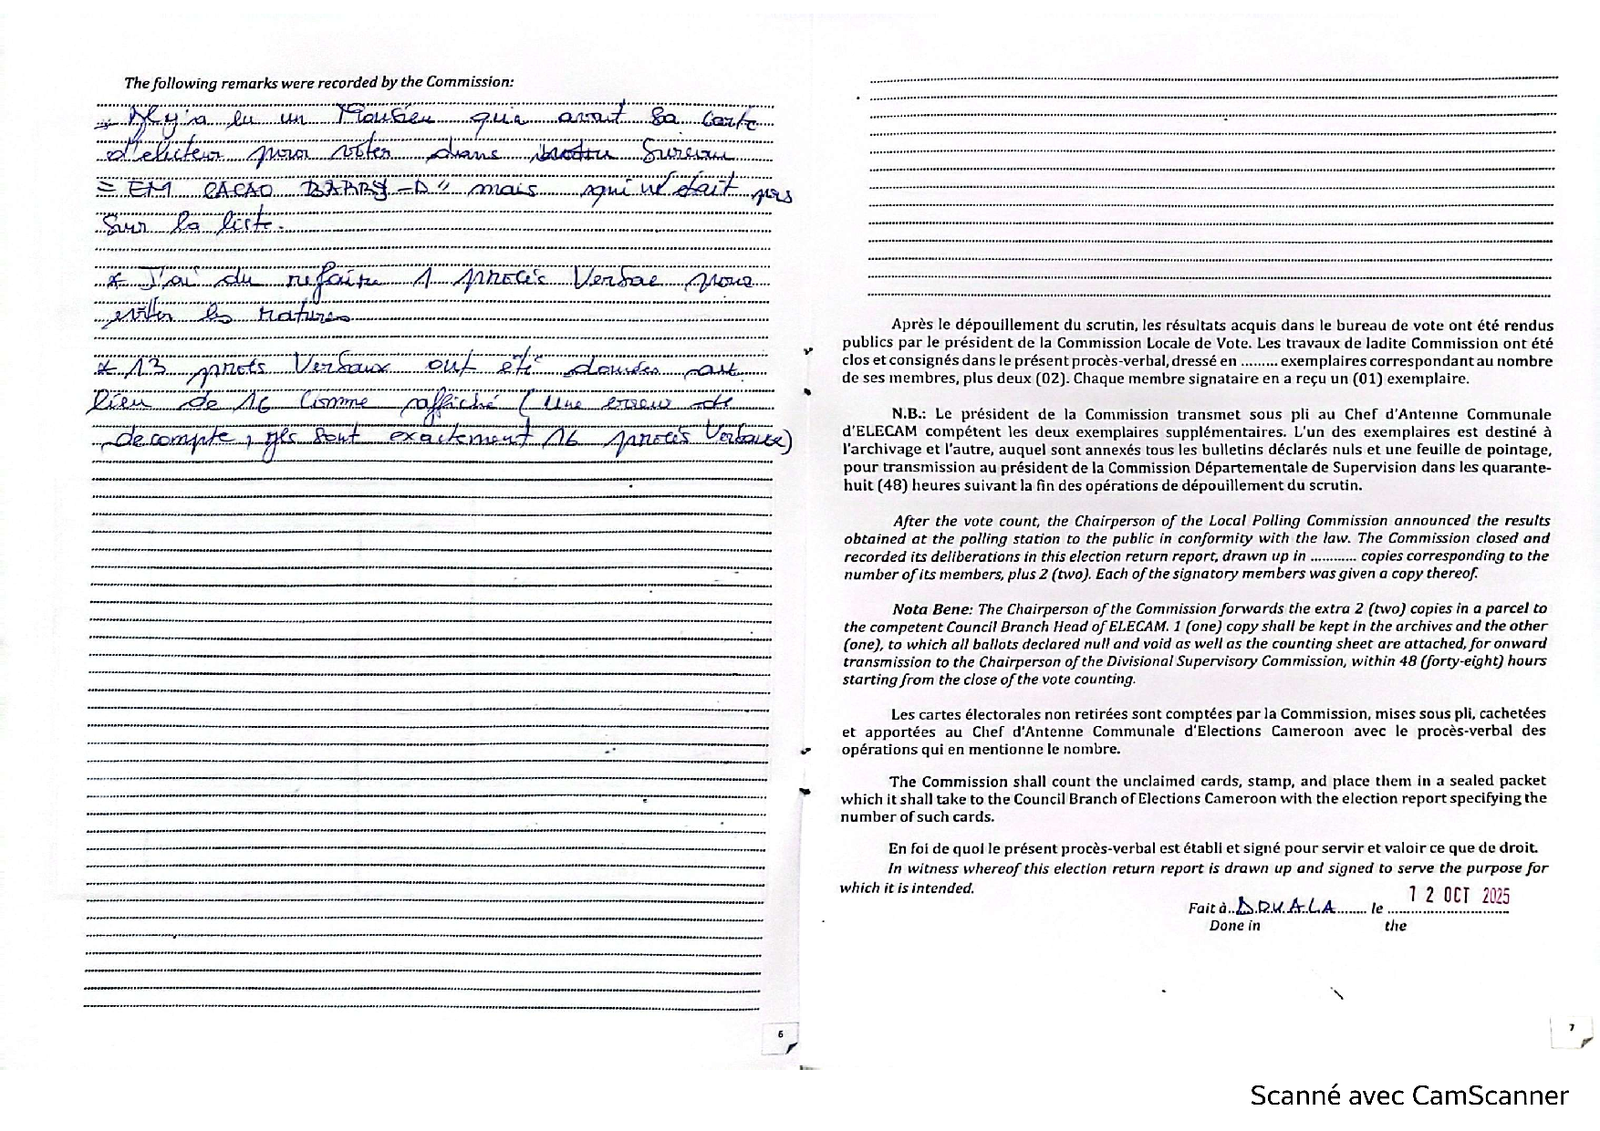 The following remarks were recorded by the Commission:
Il y'a eu un Monsieu qui avait sa carte
d'electeur pour voter dans Bureau
= EM CACAO BARRY-D" mais qui n'était pas
Sur la liste.
* J'ai du refaire 1 procès Verbal pour
eviter les ratures
* 13 procès Verbaux ont été données au
lieu de 16 Comme affiché (une erreur de
decompte, ils sont exactement 16 procès Verbaux)
6
Après le dépouillement du scrutin, les résultats acquis dans le bureau de vote ont été rendus
publics par le président de la Commission Locale de Vote. Les travaux de ladite Commission ont été
clos et consignés dans le présent procès-verbal, dressé en ......... exemplaires correspondant au nombre
de ses membres, plus deux (02). Chaque membre signataire en a reçu un (01) exemplaire.
N.B.: Le président de la Commission transmet sous pli au Chef d'Antenne Communale
d'ELECAM compétent les deux exemplaires supplémentaires. L'un des exemplaires est destiné à
l'archivage et l'autre, auquel sont annexés tous les bulletins déclarés nuls et une feuille de pointage,
pour transmission au président de la Commission Départementale de Supervision dans les quarante-
huit (48) heures suivant la fin des opérations de dépouillement du scrutin.
After the vote count, the Chairperson of the Local Polling Commission announced the results
obtained at the polling station to the public in conformity with the law. The Commission closed and
recorded its deliberations in this election return report, drawn up in ............ copies corresponding to the
number of its members, plus 2 (two). Each of the signatory members was given a copy thereof.
Nota Bene: The Chairperson of the Commission forwards the extra 2 (two) copies in a parcel to
the competent Council Branch Head of ELECAM. 1 (one) copy shall be kept in the archives and the other
(one), to which all ballots declared null and void as well as the counting sheet are attached, for onward
transmission to the Chairperson of the Divisional Supervisory Commission, within 48 (forty-eight) hours
starting from the close of the vote counting.
Les cartes électorales non retirées sont comptées par la Commission, mises sous pli, cachetées
et apportées au Chef d'Antenne Communale d'Elections Cameroon avec le procès-verbal des
opérations qui en mentionne le nombre.
The Commission shall count the unclaimed cards, stamp, and place them in a sealed packet
which it shall take to the Council Branch of Elections Cameroon with the election report specifying the
number of such cards.
En foi de quoi le présent procès-verbal est établi et signé pour servir et valoir ce que de droit.
In witness whereof this election return report is drawn up and signed to serve the purpose for
which it is intended.
Fait à DOUALA le 12 OCT 2025
Done in the
7
Scanné avec CamScanner